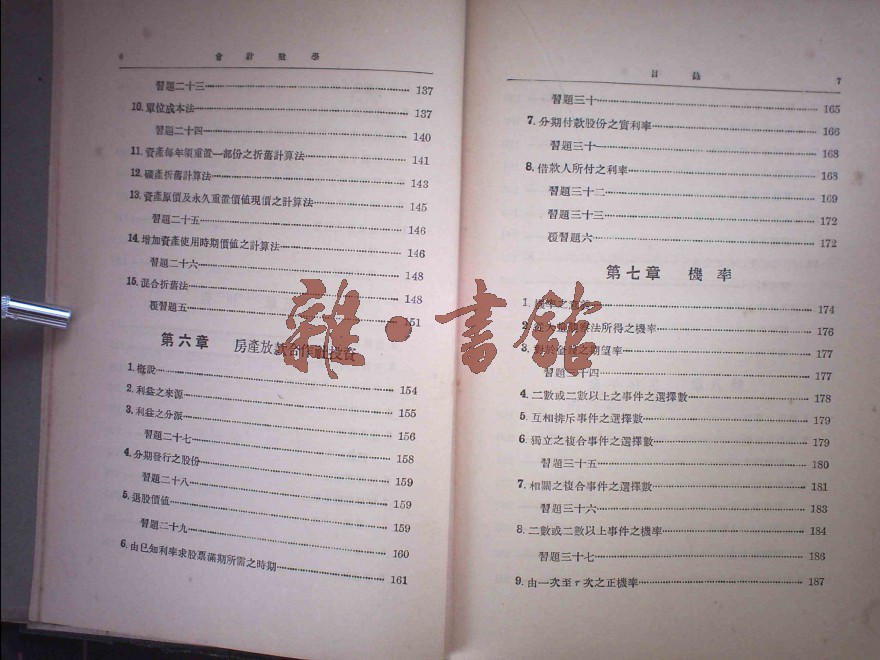 6 會計數學
習題二十三 137
10. 單位成本法 137
習題二十四 140
11. 資產每年須重置一部份之折舊計算法 141
12. 礦產折舊計算法 143
13. 資產原價及永久重置價值現價之計算法 145
習題二十五 146
14. 增加資產使用時期價值之計算法 146
習題二十六 148
15. 混合折舊法 148
覆習題五 151
第六章 房產放款合作社投資
1. 概說 154
2. 利益之來源 155
3. 利益之分派 156
習題二十七 158
4. 分期發行之股份 159
習題二十八 159
5. 退股價值 159
習題二十九 160
6. 由已知利率求股票滿期所需之時期 161
目錄 7
習題三十 165
7. 分期付款股份之實利率 166
習題三十一 168
8. 借款人所付之利率 168
習題三十二 169
習題三十三 172
覆習題六 172
第七章 機率
1. 機率之意義 174
2. 從大量觀察法所得之機率 176
3. 對於金錢之期望率 177
習題三十四 177
4. 二數或二數以上之事件之選擇數 178
5. 互相排斥事件之選擇數 179
6. 獨立之複合事件之選擇數 179
習題三十五 180
7. 相關之複合事件之選擇數 181
習題三十六 183
8. 二數或二數以上事件之機率 184
習題三十七 186
9. 由一次至r次之正機率 187
雜·書館